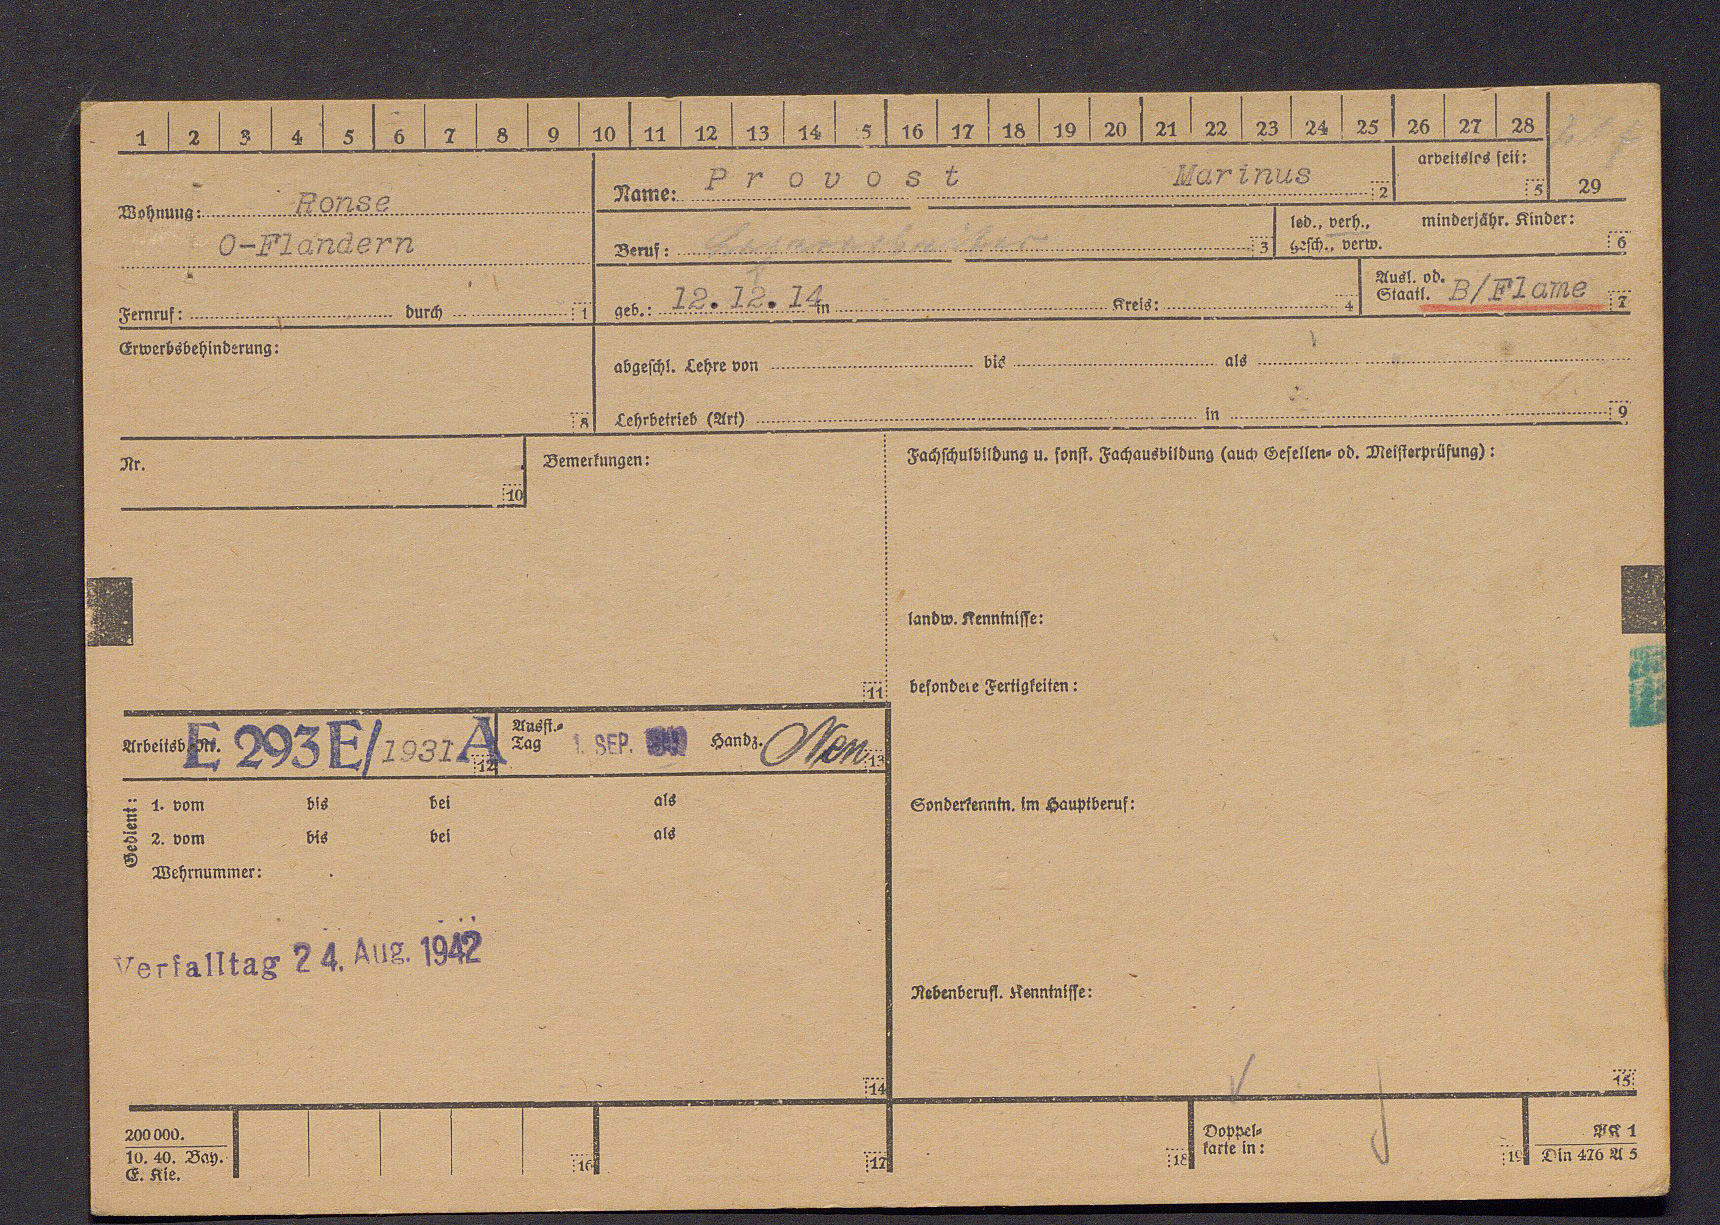 1 2 3 4 5 6 7 8 9 10 11 12 13 14 5 16 17 18 19 20 21 22 23 24 25 26 27 28
29
Wohnung: Ronse
O-Flandern
Fernruf: durch 1
Name: Provost Marinus 2
arbeitslos seit: 5
Beruf: 3
led., verh., minderjähr. Kinder:
gesch., verw. 6
geb.: 12.12.14 in Kreis: 4
Ausl. od.
Staatl. B/Flame 7
Erwerbsbehinderung:
8
abgeschl. Lehre von bis als
Lehrbetrieb (Art) in 9
Nr.
10
Bemerkungen:
11
Fachschulbildung u. sonst. Fachausbildung (auch Gesellen- od. Meisterprüfung):
landw. Kenntnisse:
besondere Fertigkeiten:
Sonderkenntn. im Hauptberuf:
Nebenberufl. Kenntnisse:
15
Arbeitsb. Nr. E 293E/1931 A 12
Ausst.-
Tag 1. SEP. Handz. 13
Gedient:
1. vom bis bei als
2. vom bis bei als
Wehrnummer:
Verfalltag 24. Aug. 1942
14
200000.
10. 40. Bay.
E. Kie.
16
17
18
Doppel-
karte in:
19
AK 1
Din 476 A 5